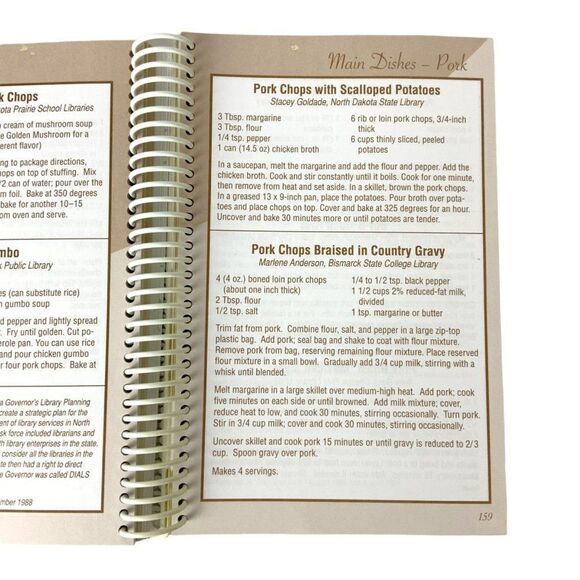 k Chops
ota Prairie School Libraries
n cream of mushroom soup
e Golden Mushroom for a
erent flavor)
ng to package directions,
hops on top of stuffing. Mix
/2 can of water; pour over the
m foil. Bake at 350 degrees
bake for another 10–15
om oven and serve.
umbo
k Public Library
es (can substitute rice)
n gumbo soup
d pepper and lightly spread
. Fry until golden. Cut po-
erole pan. You can use rice
and pour chicken gumbo
r four pork chops. Bake at
a Governor's Library Planning
create a strategic plan for the
ent of library services in North
sk force included librarians and
th library enterprises in the state.
consider all the libraries in the
te then had a right to direct
e Governor was called DIALS
mber 1988
Main Dishes – Pork
Pork Chops with Scalloped Potatoes
Stacey Goldade, North Dakota State Library
3 Tbsp. margarine
3 Tbsp. flour
1/4 tsp. pepper
1 can (14.5 oz) chicken broth
6 rib or loin pork chops, 3/4-inch
thick
6 cups thinly sliced, peeled
potatoes
In a saucepan, melt the margarine and add the flour and pepper. Add the
chicken broth. Cook and stir constantly until it boils. Cook for one minute,
then remove from heat and set aside. In a skillet, brown the pork chops.
In a greased 13 x 9-inch pan, place the potatoes. Pour broth over pota-
toes and place chops on top. Cover and bake at 325 degrees for an hour.
Uncover and bake 30 minutes more or until potatoes are tender.
Pork Chops Braised in Country Gravy
Marlene Anderson, Bismarck State College Library
4 (4 oz.) boned loin pork chops
(about one inch thick)
2 Tbsp. flour
1/2 tsp. salt
1/4 to 1/2 tsp. black pepper
1 1/2 cups 2% reduced-fat milk,
divided
1 tsp. margarine or butter
Trim fat from pork. Combine flour, salt, and pepper in a large zip-top
plastic bag. Add pork; seal bag and shake to coat with flour mixture.
Remove pork from bag, reserving remaining flour mixture. Place reserved
flour mixture in a small bowl. Gradually add 3/4 cup milk, stirring with a
whisk until blended.
Melt margarine in a large skillet over medium-high heat. Add pork; cook
five minutes on each side or until browned. Add milk mixture; cover,
reduce heat to low, and cook 30 minutes, stirring occasionally. Turn pork.
Stir in 3/4 cup milk; cover and cook 30 minutes, stirring occasionally.
Uncover skillet and cook pork 15 minutes or until gravy is reduced to 2/3
cup. Spoon gravy over pork.
Makes 4 servings.
159